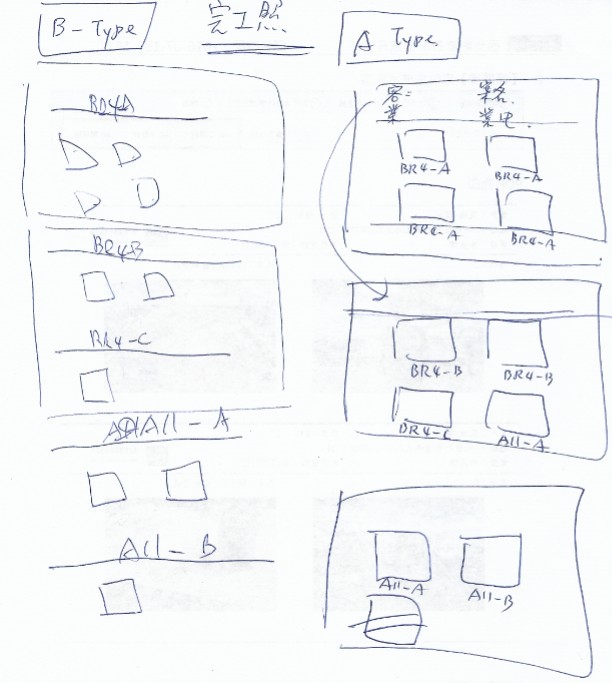 B-Type
完工照
A Type
BR4A
BR4B
BR4-C
All-A
All-B
客=
業
案名.
業電.
BR4-A
BR4-A
BR4-A
BR4-A
BR4-B
BR4-B
BR4-C
All-A
All-A
All-B